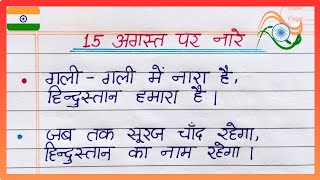 15 अगस्त पर नारे
गली - गली में नारा है,
हिन्दुस्तान हमारा है।
जब तक सूरज चाँद रहेगा,
हिन्दुस्तान का नाम रहेगा।